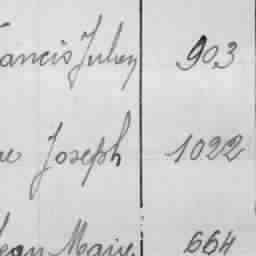 ancis Julien 903
ue Joseph 1022
Jean Marie 664